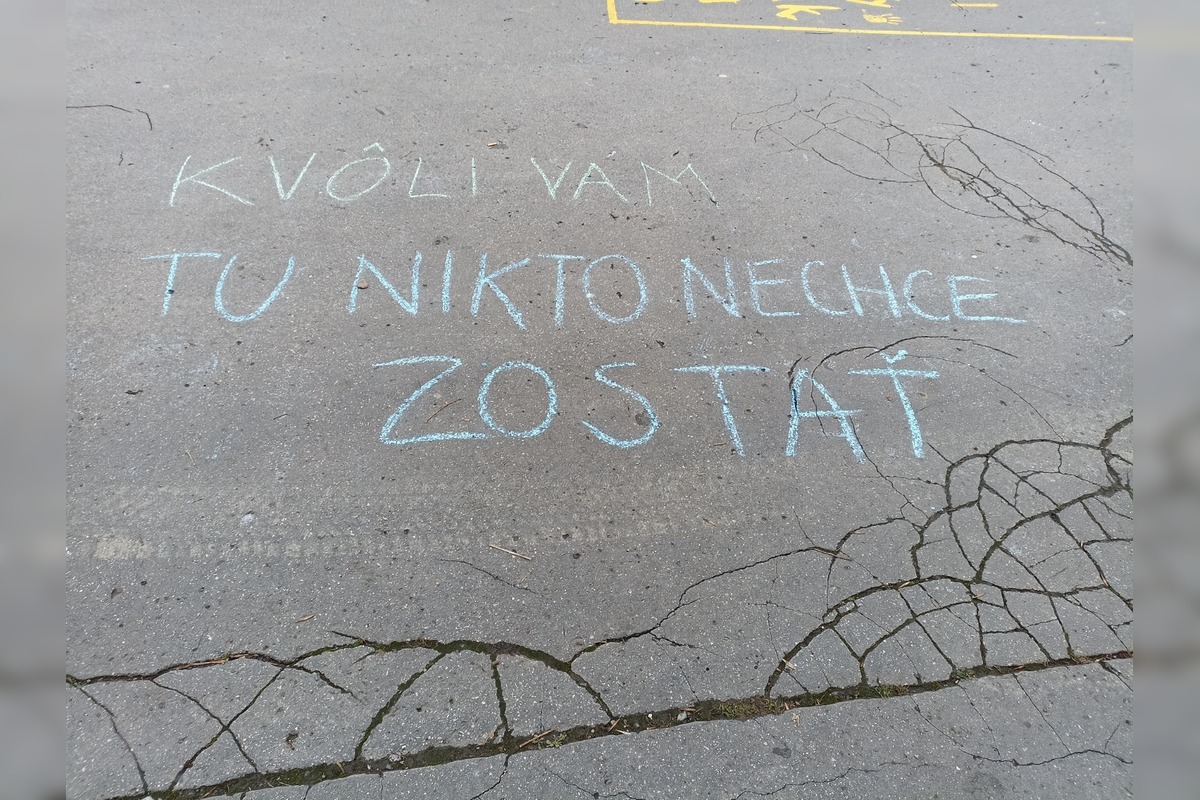 KVÔLI VÁM
TU NIKTO NECHCE
ZOSTAŤ